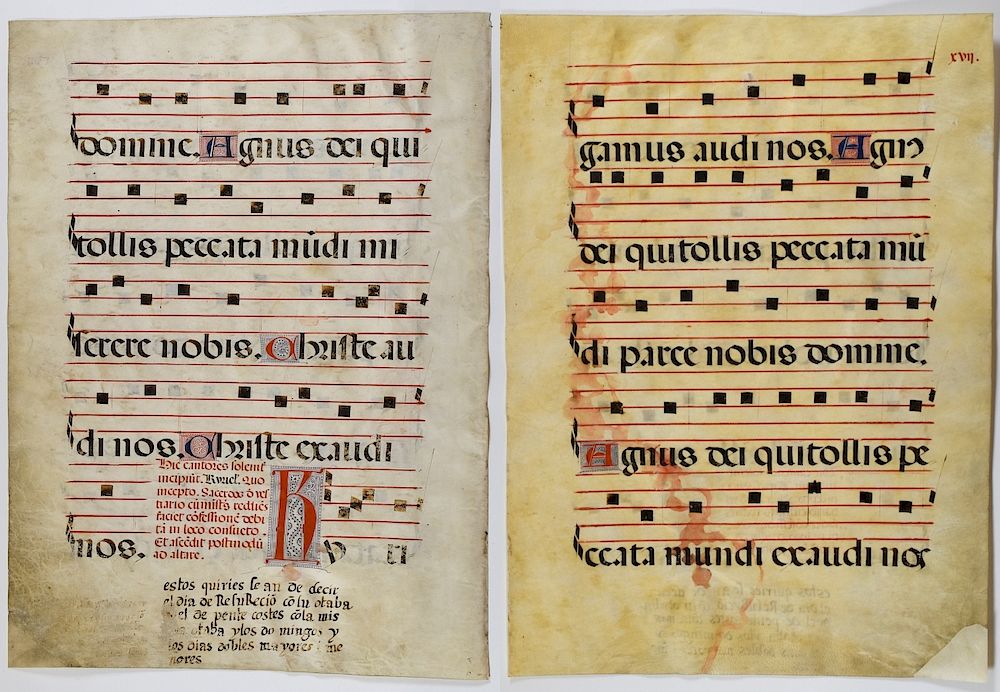 domine. Agnus dei qui
tollis peccata mūdi mi
serere nobis. Christe au
di nos. Christe exaudi
Hic cantores solemt̄
incipiūt. Kyriel. Quo
incepto. Sacerdos ī ves
tuario cū mīstris
faciet cōfessionē debi
tā in loco consueto.
Et ascēdit postmodū
ad altare.
nos.
K
ri
estos quiries se an de decir
el dia de Resureciō cō su otaba
el de pente costes cō la mis
otaba y los domingos y
los dias dobles mayores i me
nores
xvij.
gamus audi nos. Agn9
dei qui tollis peccata mū
di parce nobis domine.
Agnus dei qui tollis pe
ccata mundi exaudi nos